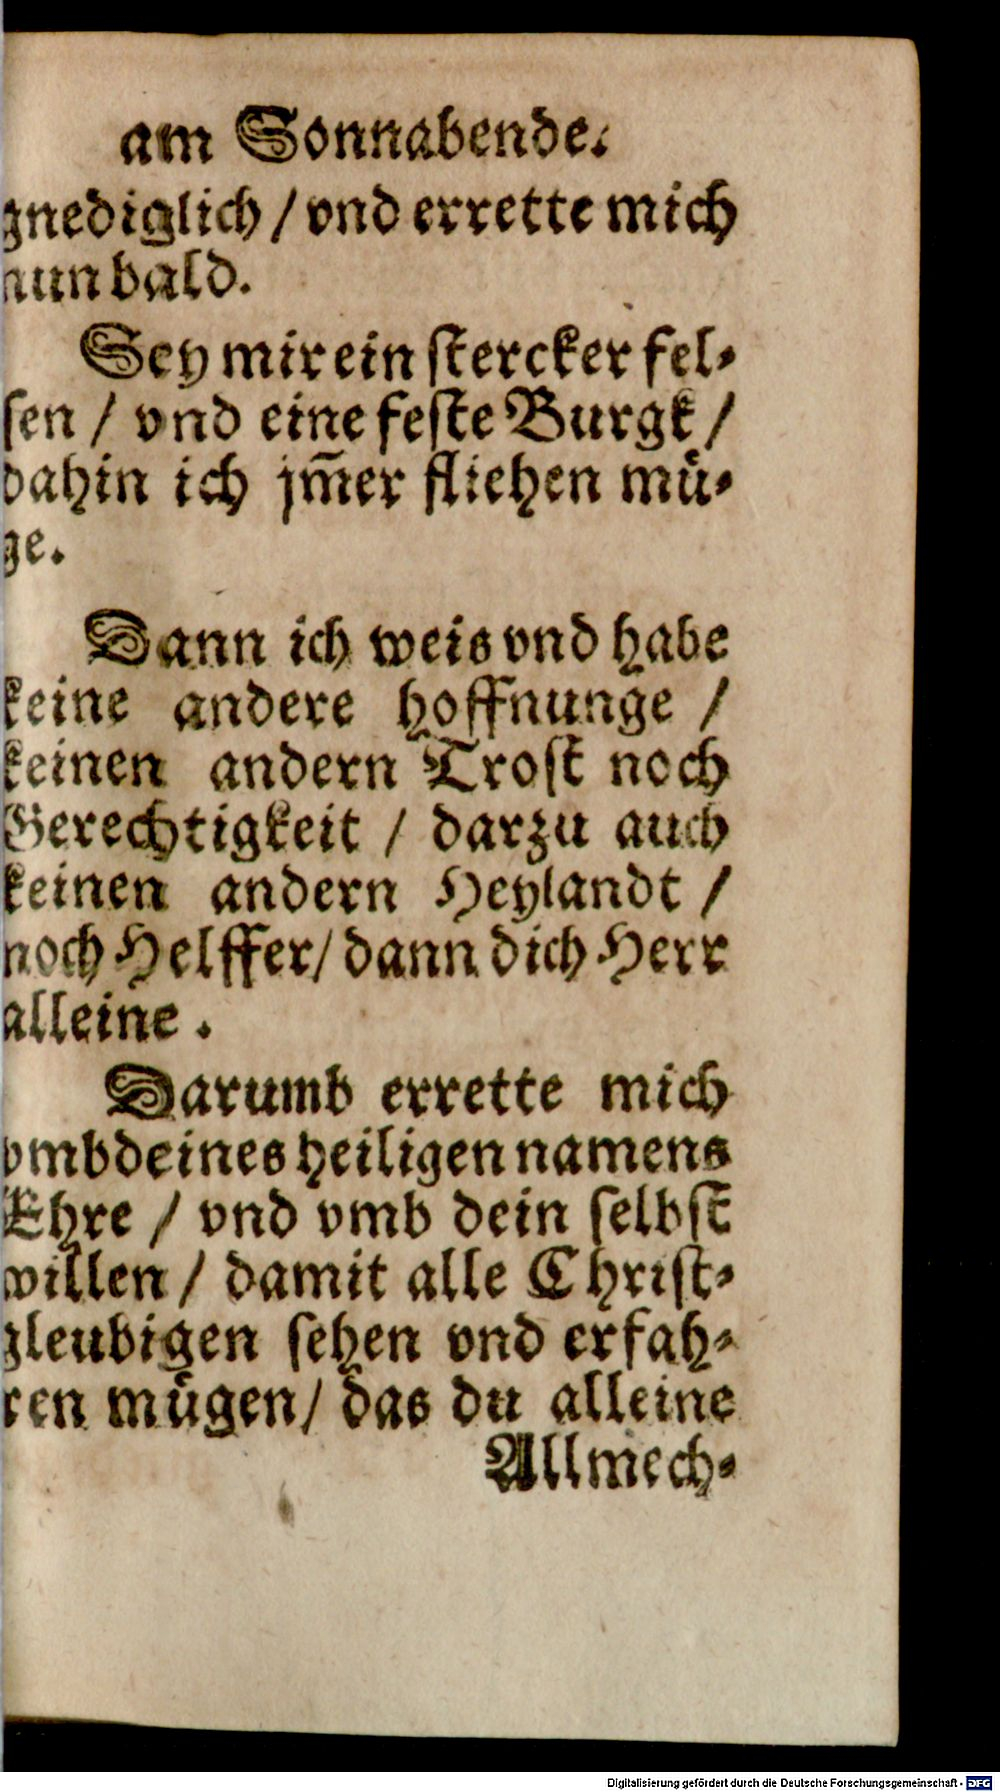 am Sonnabende.
gnediglich / vnd errette mich
nun bald.
Sey mir ein stercker fel-
sen / vnd eine feste Burgk /
dahin ich jm̃er fliehen mü-
ge.
Dann ich weis vnd habe
keine andere hoffnunge /
keinen andern Trost noch
Gerechtigkeit / darzu auch
keinen andern Heylandt /
noch Helffer / dann dich Herr
alleine .
Darumb errette mich
vmb deines heiligen namens
Ehre / vnd vmb dein selbst
willen / damit alle Christ-
gleubigen sehen vnd erfah-
ren mügen / das du alleine
Allmech-
Digitalisierung gefördert durch die Deutsche Forschungsgemeinschaft - DFG